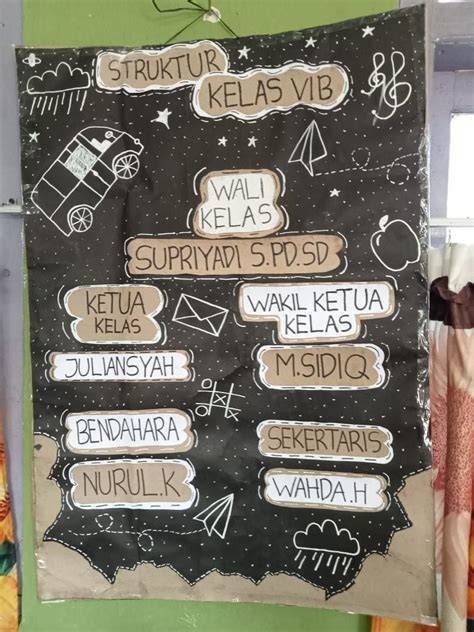 STRUKTUR
KELAS VIB
WALI
KELAS
SUPRIYADI S.PD.SD
KETUA
KELAS
WAKIL KETUA
KELAS
JULIANSYAH
M.SIDIQ
BENDAHARA
SEKERTARIS
NURUL.K
WAHDA.H